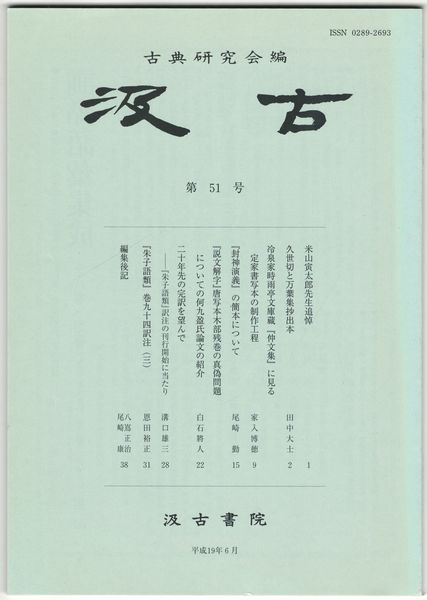 ISSN 0289-2693
古典研究会編
汲古
第 51 号
米山寅太郎先生追悼 1
久世切と万葉集抄出本 田中大士 2
冷泉家時雨亭文庫蔵『仲文集』に見る
定家書写本の制作工程 家入博徳 9
『封神演義』の簡本について 尾崎勤 15
『説文解字』唐写本木部残巻の真偽問題
についての何九盈氏論文の紹介 白石將人 22
二十年先の完訳を望んで
――『朱子語類』訳注の刊行開始に当たり 溝口雄三 28
『朱子語類』巻九十四訳注(三) 恩田裕正 31
編集後記 八嶌正治 尾崎康 38
汲古書院
平成19年6月